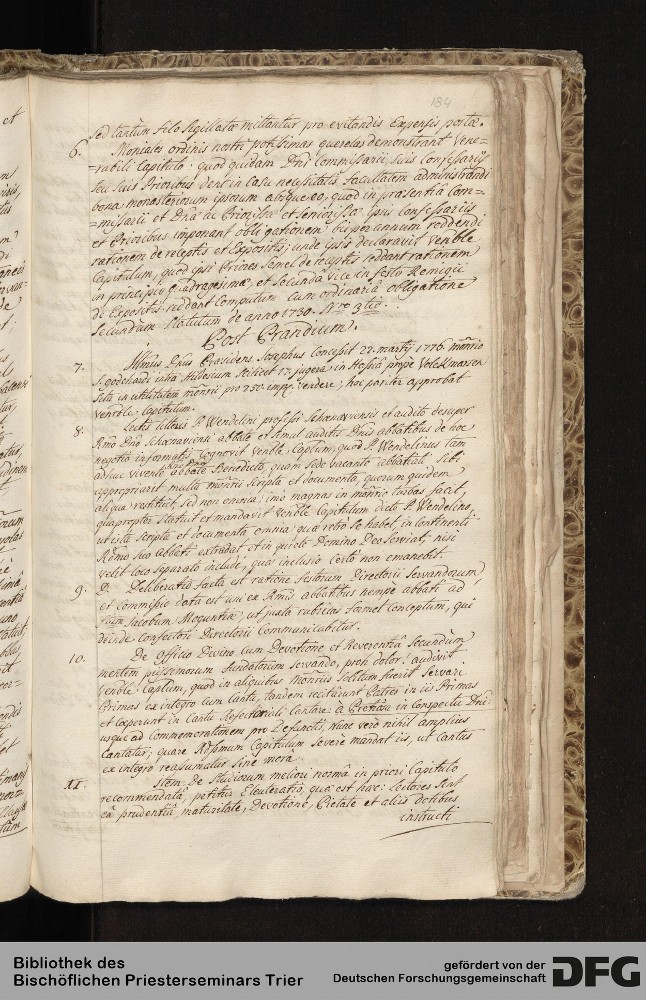 184
sed tantum filo sigillatae mittantur pro evitandis Expensis postae.
6. Moniales ordinis nostri potissimas querelas demonstrant Vene=
=rabili Capitulo: quod quidam Dni Commissarii, suis Confessariis
seu suis Prioribus dent in Casu necessitatis facultatem administrandi
bona monasteriorum ipsorum absque eo, quod in praesentia Com=
=missarii et Dnae ac Priorissae et Seniorissae ipsis Confessariis
et Prioribus imponant obligationem bis per annum reddendi
rationem de receptis et Expositis; unde ipsis declaravit Venble
Capitulum, quod ipsi Priores semel de receptis reddant rationem
in principio quadragesimae, et secunda vice in festo Remigii
de Expositis reddant Computum cum ordinaria obligatione
secundum Statutum de anno 1730. Nro 3tio.
Post Prandium.
7. Illmus Dnus Praesidens Josephus Concessit 22. martii 1776.
S. godehardi intra Hildesium scilicet 17. jugera in Hassia prope Volckmarsen
sita in utilitatem pro 250. vendere; hoc pariter approbat
venble Capitulum.
8. Lectis litteris P. Wendelini professi Schoenaviensis et audito desuper
Rmo Dno Schoenaviensi abbate et simul auditis Dnis abbatibus de hoc
negotio informatis Cognovit venble Captum, quod P. Wendelinus tam
adhuc vivente abbate Benedicto, quam sede vacante abbatiali sibi
appropriarit multa scripta et documenta, quorum quidem
aliqua restituit, sed non omnia; imo magnas in turbas facit,
quapropter statuit et mandavit venble Capitulum dicto P. Wendelino,
ut ista scripta et documenta omnia quae retro se habet, in continenti
Rdmo suo Abbati extradat et in quiete Domino Deo serviat, nisi
velit loco separato includi, qua inclusio certo non emanebit.
9. D. Deliberatio facta est ratione festorum Directorii servandorum
et Commissio data est uni ex Rmis abbatibus nempe abbati ad
Stum Jacobum Moguntiae, ut juxta rubricas formet Conceptum, qui
deinde confectori Directorii Communicabitur.
10. De officio Divino cum Devotione et Reverentia secundum
mentem piissimorum fundatorum servando, proh dolor! audivit
venble Captum, quod in aliquibus solitum fuerit servari
Primas ex integro cum Cantu, tandem recitarunt Patres in iis Primas
et Coeperunt in Cantu Cantare: à Pretiosa in Conspectu Dni
usque ad Commemorationem pro Defunctis, nunc vero nihil amplius
Cantatur; quare Capitulum severe mandat iis, ut cantus
ex integro reassumatur sine mora.
11. Item De Studiorum meliori norma in priori Capitulo
recommendata, petitur Elucidatio, quae est haec: Lectores sint
ea prudentia, maturitate, Devotione, Pietate et aliis dotibus
instructi
Bibliothek des
Bischöflichen Priesterseminars Trier
gefördert von der
Deutschen Forschungsgemeinschaft
DFG